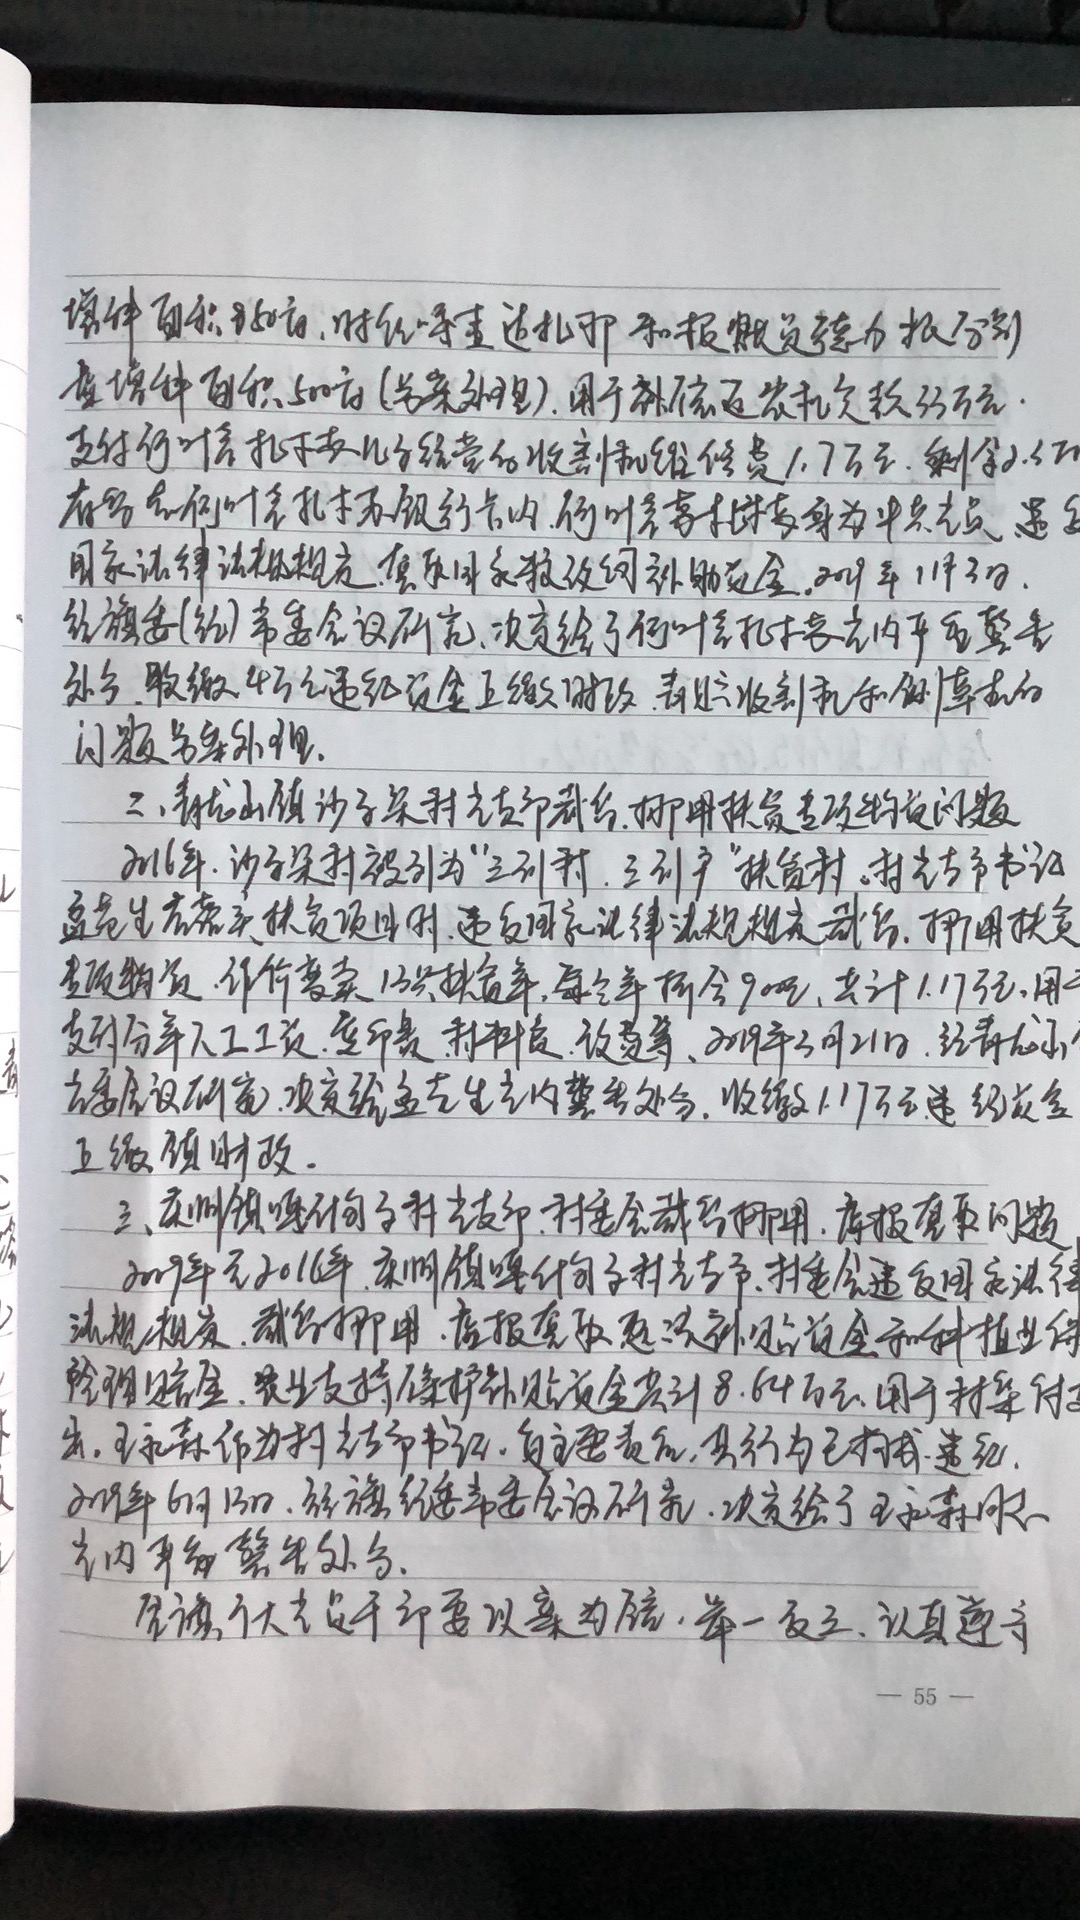 增种面积850亩,时任嘎查达扎那和报账员德力根分别
虚增种面积500亩(另案处理).用于补偿还农机欠款
支付何叶吉扎木苏儿子经营的收割机维修费1.7万元.剩余
存留在何叶吉扎木苏银行卡内.何叶吉扎木苏身为中共党员.违反
国家法律法规规定.套取国家 补助资金。2019年1月3日.
经旗委(纪)常委会议研究.决定给予何叶吉扎木苏党内严重警告
处分.收缴4万元违纪资金上缴财政.青贮收割机和 的
问题另案处理.
二、青龙山镇沙子梁村党支部截留.挪用扶贫专项物资问题
2016年.沙子梁村被列为"三到村.三到户"扶贫村。村党支部书记
孟先生在落实扶贫项目时.违反国家法律法规规定截留.挪用扶贫
专项物资.作价变卖13只扶贫羊.每只羊折合900元.共计1.17万元.用于
支付分羊人工工资.复印费.材料费. 费等.2019年3月21日.经青龙山镇
党委会议研究.决定给孟先生党内警告处分.收缴1.17万元违纪资金
上缴镇财政.
三、 镇嘎什甸子村党支部.村委会截留挪用.虚报套取问题
2009年至2016年. 镇嘎什甸子村党支部.村委会违反国家法律
法规规定.截留挪用.虚报套取 补贴资金和种植业保
险理赔金.农业支持保护补贴资金共计8.64万元.用于村集体支
出.王永森作为村党支部书记.负主要责任,其行为已构成违纪.
2019年6月13日.经旗纪委常委会议研究.决定给予王永森同志
党内严重警告处分.
全旗广大党员干部要以案为镜.举一反三.认真遵守
— 55 —